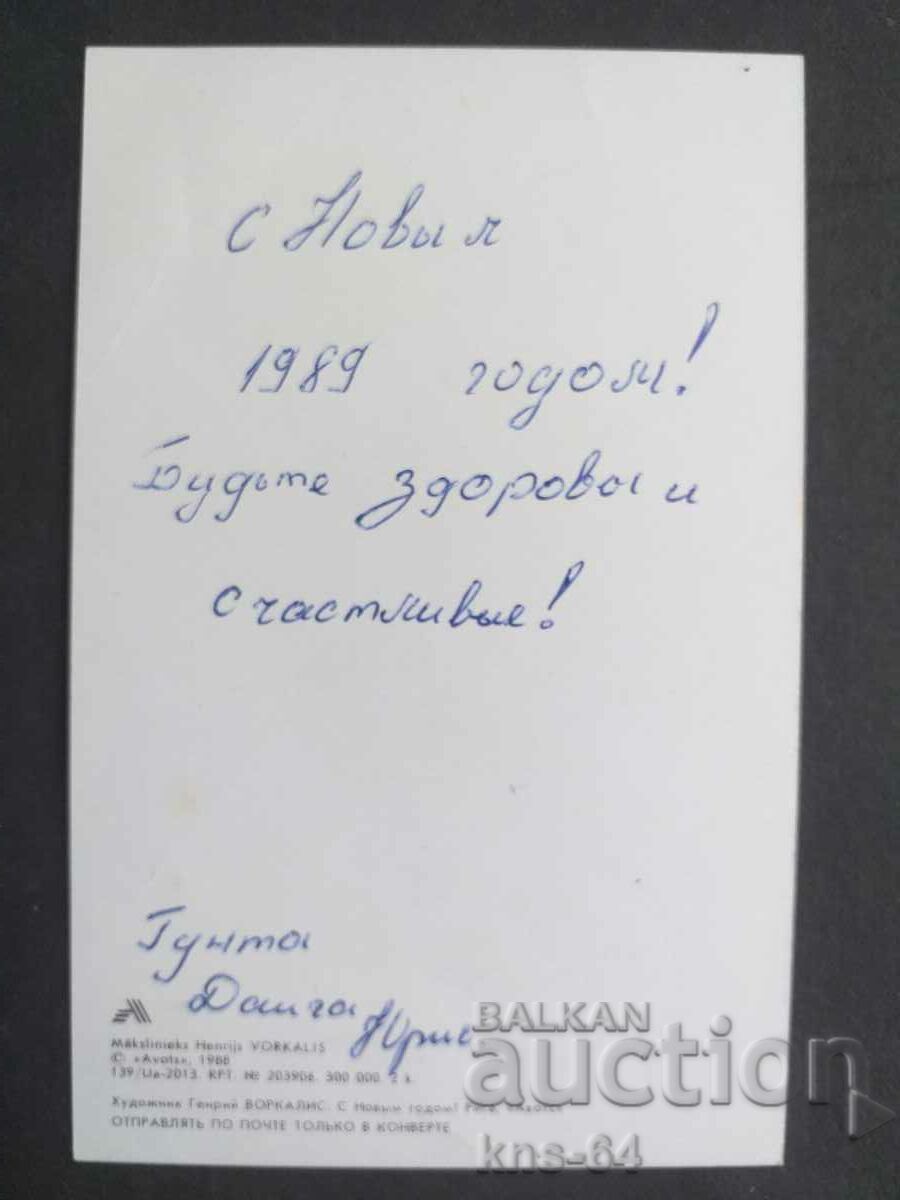 С Новым
1989 годом!
Будьте здоровы и
счастливые!
Гунта
Даига
Юрис
Mākslinieks Henrijs VORKALIS
© «Avots», 1988
139/Ua-2013. RPT. № 203906. 300 000. 2 s.
Художник Генрий ВОРКАЛИС. С Новым годом! Рига, «Авотс»
ОТПРАВЛЯТЬ ПО ПОЧТЕ ТОЛЬКО В КОНВЕРТЕ
BALKAN
auction
kns-64